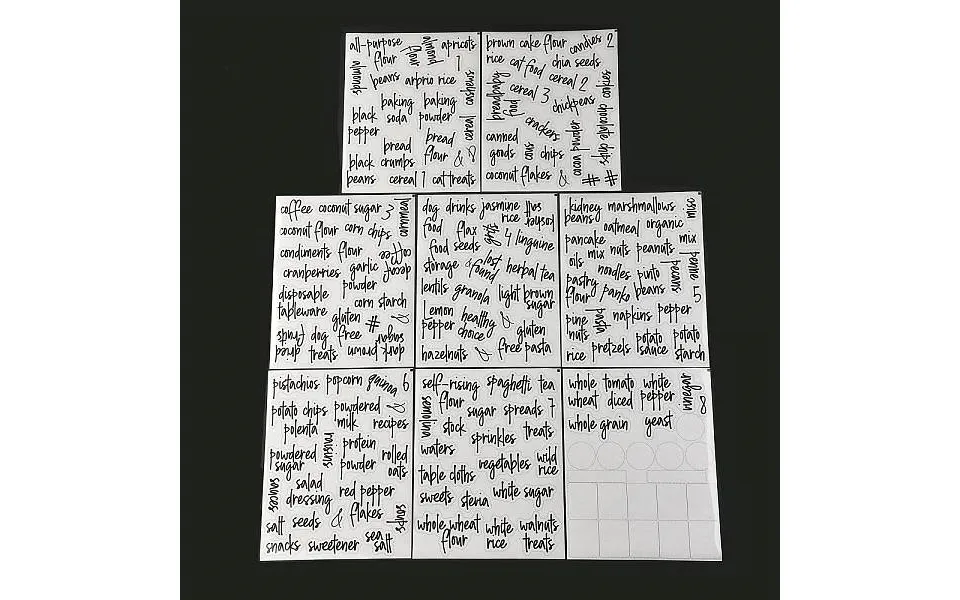 all-purpose flour
almond flour
apricots
1
almonds
beans
arbrio rice
cashews
baking soda
baking powder
black pepper
cereal
bread crumbs
bread flour
&
black beans
cereal 1
cat treats
brown rice
cake flour
candies
2
cat food
chia seeds
bread
baby food
cereal 2
cookies
cereal 3
chickpeas
chocolate chips
crackers
canned goods
cous cous
chips
cocoa powder
coconut flakes
&
#
#
coffee
coconut sugar
3
caramel
coconut flour
corn chips
condiments
flour
coffee decaf
cranberries
garlic powder
disposable tableware
corn starch
gluten free
#
&
dried fruits
dog treats
dark brown sugar
dog food
drinks
jasmine rice
kosher salt
flax seeds
grits
4
linguine
food storage
lost & found
herbal tea
lentils
granola
light brown sugar
lemon pepper
healthy choice
&
gluten free
hazelnuts
&
pasta
kidney beans
marshmallows
misc
oatmeal
organic
pancake mix
nuts
peanuts
mix
oils
noodles
pinto beans
pecans
penne
5
pastry flour
panko
pine nuts
pasta
napkins
pepper
rice
pretzels
potato sauce
potato starch
pistachios
popcorn
quinoa
6
potato chips
powdered milk
&
recipes
polenta
raisins
protein powder
rolled oats
powdered sugar
sauces
salad dressing
red pepper flakes
soups
salt
seeds
&
snacks
sweetener
sea salt
self-rising flour
spaghetti
tea
semolina
sugar
spreads
7
stock
sprinkles
treats
waters
vegetables
wild rice
table cloths
sweets
steria
white sugar
whole wheat flour
white rice
walnuts
treats
whole wheat
tomato diced
white pepper
vinegar
8
whole grain
yeast